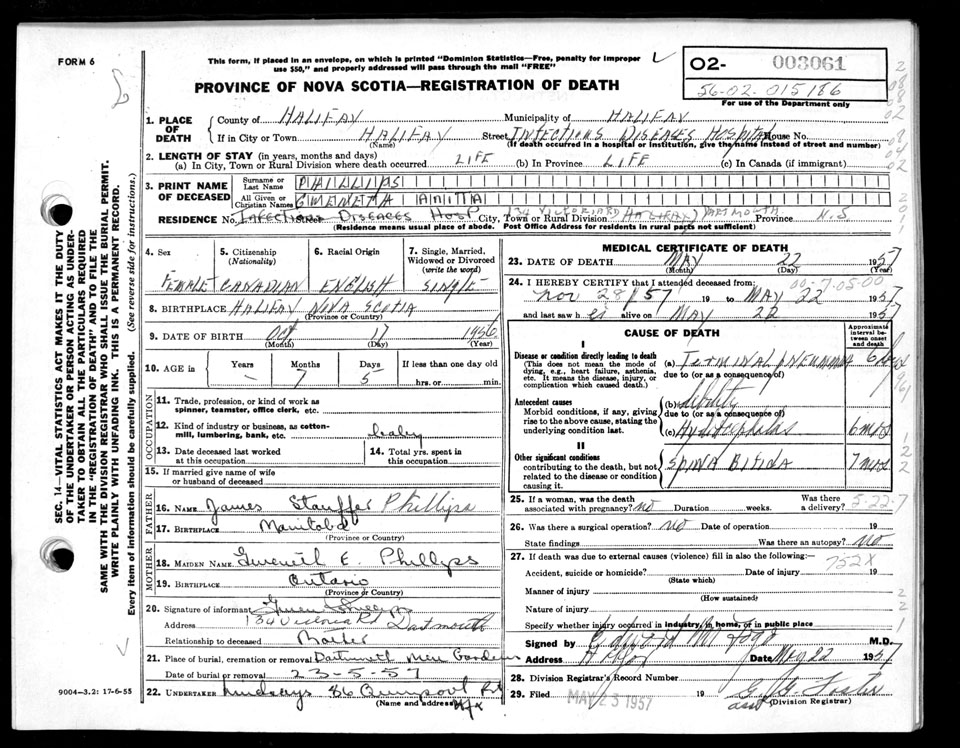 FORM 6
This form, if placed in an envelope, on which is printed "Dominion Statistics—Free, penalty for improper
use $50," and properly addressed will pass through the mail "FREE"
PROVINCE OF NOVA SCOTIA—REGISTRATION OF DEATH
O2- 003061
56-02-015186
For use of the Department only
SEC. 14—VITAL STATISTICS ACT MAKES IT THE DUTY
OF THE UNDERTAKER OR PERSON ACTING AS UNDER-
TAKER TO OBTAIN ALL THE PARTICULARS REQUIRED
IN THE "REGISTRATION OF DEATH" AND TO FILE THE
SAME WITH THE DIVISION REGISTRAR WHO SHALL ISSUE THE BURIAL PERMIT.
WRITE PLAINLY WITH UNFADING INK. THIS IS A PERMANENT RECORD.
Every item of information should be carefully supplied. (See reverse side for instructions.)
1. PLACE OF DEATH
County of HALIFAX Municipality of HALIFAX
If in City or Town HALIFAX Street INFECTIOUS DISEASES HOSPITAL House No.
(Name) (If death occurred in a hospital or institution, give the name instead of street and number)
2. LENGTH OF STAY (in years, months and days)
(a) In City, Town or Rural Division where death occurred LIFE (b) In Province LIFE (c) In Canada (if immigrant)
3. PRINT NAME OF DECEASED
Surname or Last Name PHILLIPS
All Given or Christian Names GWENETA ANITA
RESIDENCE No. INFECTIOUS DISEASES HOSP City, Town or Rural Division 134 VICTORIA RD HALIFAX DARTMOUTH Province N.S
(Residence means usual place of abode. Post Office Address for residents in rural parts not sufficient)
4. Sex FEMALE
5. Citizenship (Nationality) CANADIAN
6. Racial Origin ENGLISH
7. Single, Married, Widowed or Divorced (write the word) SINGLE
8. BIRTHPLACE HALIFAX NOVA SCOTIA
(Province or Country)
9. DATE OF BIRTH Oct 17 1956
(Month) (Day) (Year)
10. AGE in Years - Months 7 Days 5 If less than one day old hrs. or min.
OCCUPATION
11. Trade, profession, or kind of work as spinner, teamster, office clerk, etc.
12. Kind of industry or business, as cotton-mill, lumbering, bank, etc. baby
13. Date deceased last worked at this occupation
14. Total yrs. spent in this occupation
15. If married give name of wife or husband of deceased
FATHER
16. NAME James Stauffer Phillips
17. BIRTHPLACE Manitoba
(Province or Country)
MOTHER
18. MAIDEN NAME Gweneth E. Phillips
19. BIRTHPLACE Ontario
(Province or Country)
20. Signature of informant Gwen Phillips
Address 134 Victoria Rd Dartmouth
Relationship to deceased Mother
21. Place of burial, cremation or removal Dartmouth Mem Gardens
Date of burial or removal 23-5-57
22. UNDERTAKER Lindsays 86 Quinpool Rd
(Name and address) Hfx
9004—3.2: 17-6-55
MEDICAL CERTIFICATE OF DEATH
23. DATE OF DEATH MAY 22 1957
(Month) (Day) (Year)
24. I HEREBY CERTIFY that I attended deceased from:
Nov 28 / 57 19 to MAY 22 1957
and last saw her alive on MAY 22 1957
CAUSE OF DEATH
Approximate interval between onset and death
I
Disease or condition directly leading to death
(This does not mean the mode of dying, e.g., heart failure, asthenia, etc. It means the disease, injury, or complication which caused death.)
(a) TERMINAL PNEUMONIA 6 days
due to (or as a consequence of)
Antecedent causes
Morbid conditions, if any, giving rise to the above cause, stating the underlying condition last.
(b) debility
due to (or as a consequence of)
(c) Hydrocephalus 6 mos
II
Other significant conditions
contributing to the death, but not related to the disease or condition causing it.
SPINA BIFIDA 7 mos
25. If a woman, was the death associated with pregnancy? no Duration weeks. Was there a delivery?
5-22-7
26. Was there a surgical operation? no Date of operation 19
State findings Was there an autopsy? no
27. If death was due to external causes (violence) fill in also the following:
752X
Accident, suicide or homicide? Date of injury 19
(State which)
Manner of injury
(How sustained)
Nature of injury
Specify whether injury occurred in industry, in home, or in public place
Signed by M.D.
Address Date May 22 1957
28. Division Registrar's Record Number
29. Filed MAY 23 1957 19
(Division Registrar)